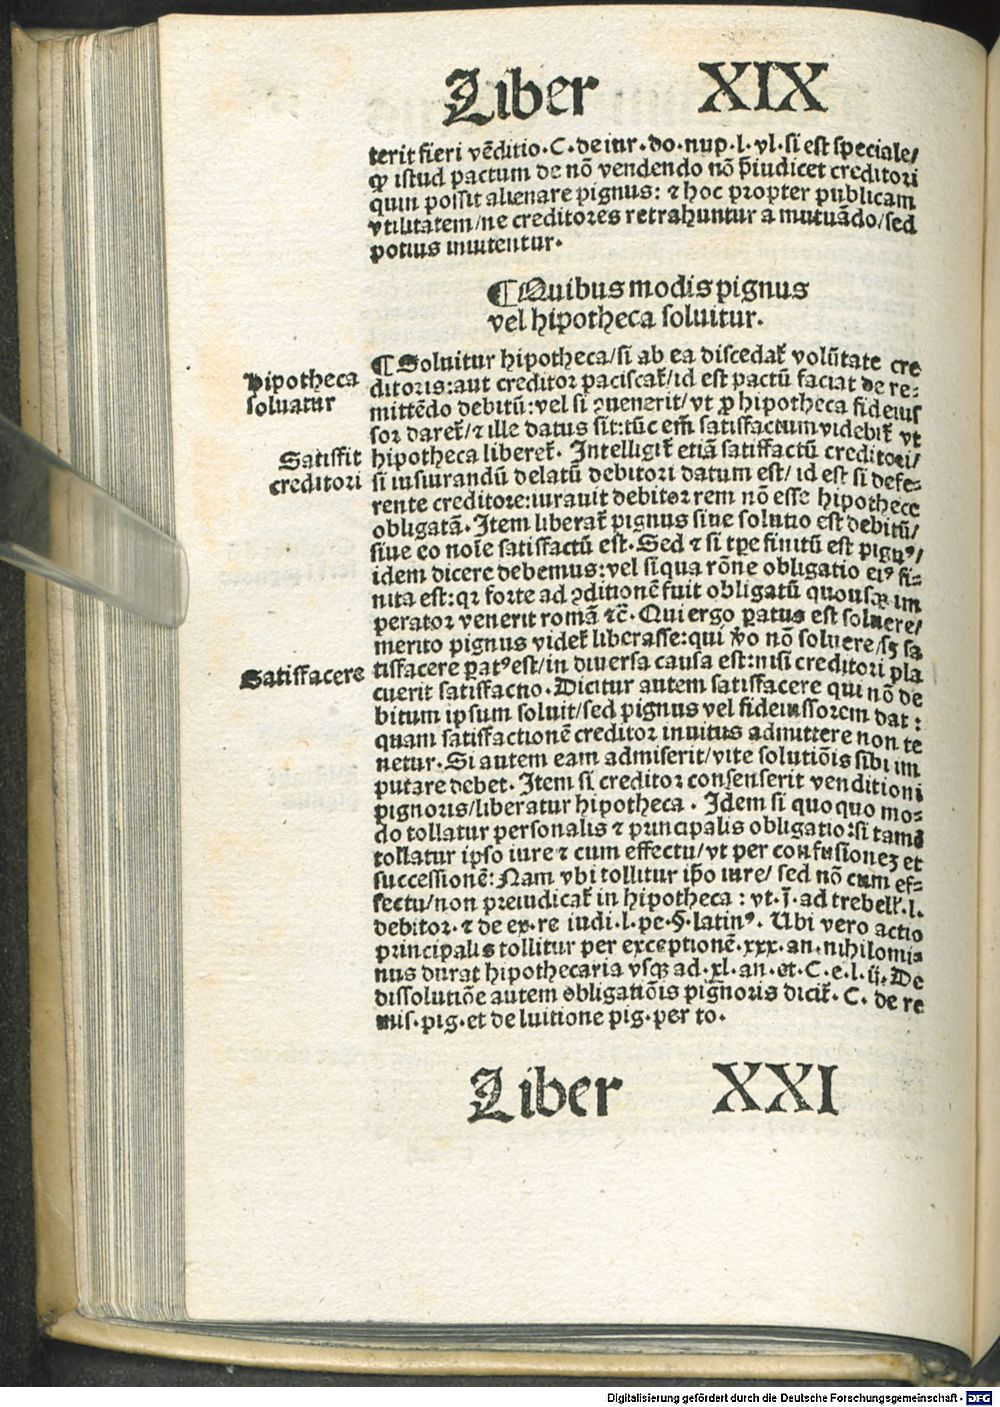 Liber XIX
terit fieri vẽditio. C. de iur. do. nup. l. vl. si est speciale/
ꝙ istud pactum de nõ vendendo nõ p̄iudicet creditori
quin possit alienare pignus: ⁊ hoc propter publicam
vtilitatem/ne creditores retrahuntur a mutuãdo/sed
potius inuitentur.
¶ Quibus modis pignus
vel hipotheca soluitur.
¶ Soluitur hipotheca/si ab ea discedat᷑ volũtate cre
ditoris: aut creditor paciscat᷑/id est pactũ faciat de re⸗
mittẽdo debitũ: vel si ꝯuenerit/vt ꝓ hipotheca fideius
sor daret᷑/⁊ ille datus sit: tũc em̃ satisfactum videbit᷑ vt
hipotheca liberet᷑. Intelligit᷑ etiã satisfactũ creditori/
si iusiurandũ delatũ debitori datum est/ id est si defe⸗
rente creditore: iurauit debitor rem nõ esse hipothece
obligatã. Item liberat᷑ pignus siue solutio est debitũ/
siue eo noĩe satisfactũ est. Sed ⁊ si tp̃e finitũ est pignꝰ/
idem dicere debemus: vel si qua rõne obligatio eiꝰ fi⸗
nita est: qr forte ad ꝯditionẽ fuit obligatũ quousqꝫ im
perator venerit romã ⁊c̃. Qui ergo ꝑatus est soluere/
merito pignus videt᷑ liberasse: qui ṽo nõ soluere/sꝫ sa
tisfacere ꝑatꝰ est/in diuersa causa est: nisi creditori pla
cuerit satisfactio. Dicitur autem satisfacere qui nõ de
bitum ipsum soluit/sed pignus vel fideiussorem dat:
quam satisfactionẽ creditor inuitus admittere non te
netur. Si autem eam admiserit/vite solutiõis sibi im
putare debet. Item si creditor consenserit venditioni
pignoris/liberatur hipotheca. Idem si quoquo mo⸗
do tollatur personalis ⁊ principalis obligatio: si tamẽ
tollatur ipso iure ⁊ cum effectu/vt per confusioneꝫ et
successionẽ: Nam vbi tollitur ip̃o iure/ sed nõ cum ef⸗
fectu/non preiudicat᷑ in hipotheca: vt. j̃. ad trebell᷑. l.
debitor. ⁊ de ex. re iudi. l. pe. §. latinꝰ. Ubi vero actio
principalis tollitur per exceptionẽ. xxx. an. nihilomi⸗
nus durat hipothecaria vsqꝫ ad. xl. an. et. C. e. l. ij. De
dissolutiõe autem obligatiõis pignoris dicit᷑. C. de re
mis. pig. et de luitione pig. per to.
Liber XXI
hipotheca
soluatur
Satisfit
creditori
Satisfacere
Digitalisierung gefördert durch die Deutsche Forschungsgemeinschaft - DFG